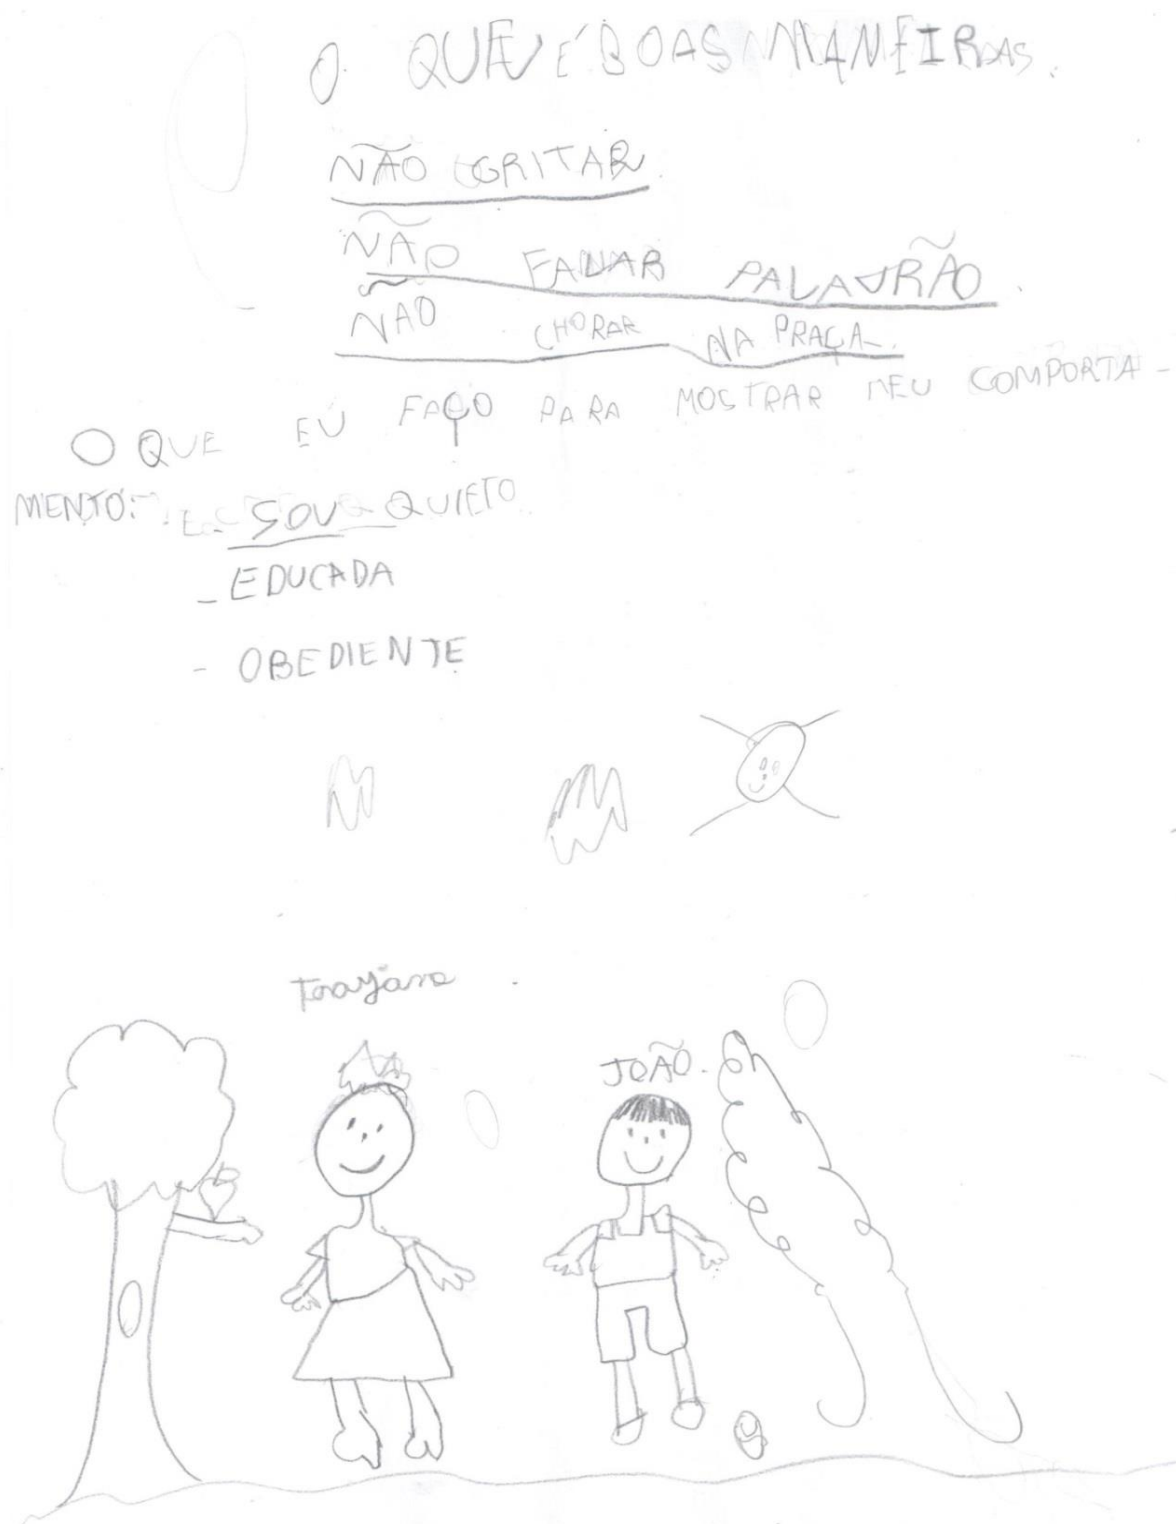 O QUE É BOAS MANEIRAS.
NÃO GRITAR
NÃO FALAR PALAVRÃO
NÃO CHORAR NA PRAÇA.
O QUE EU FAÇO PARA MOSTRAR MEU COMPORTA-
MENTO: SOU QUIETO
- EDUCADA
- OBEDIENTE
JOÃO.